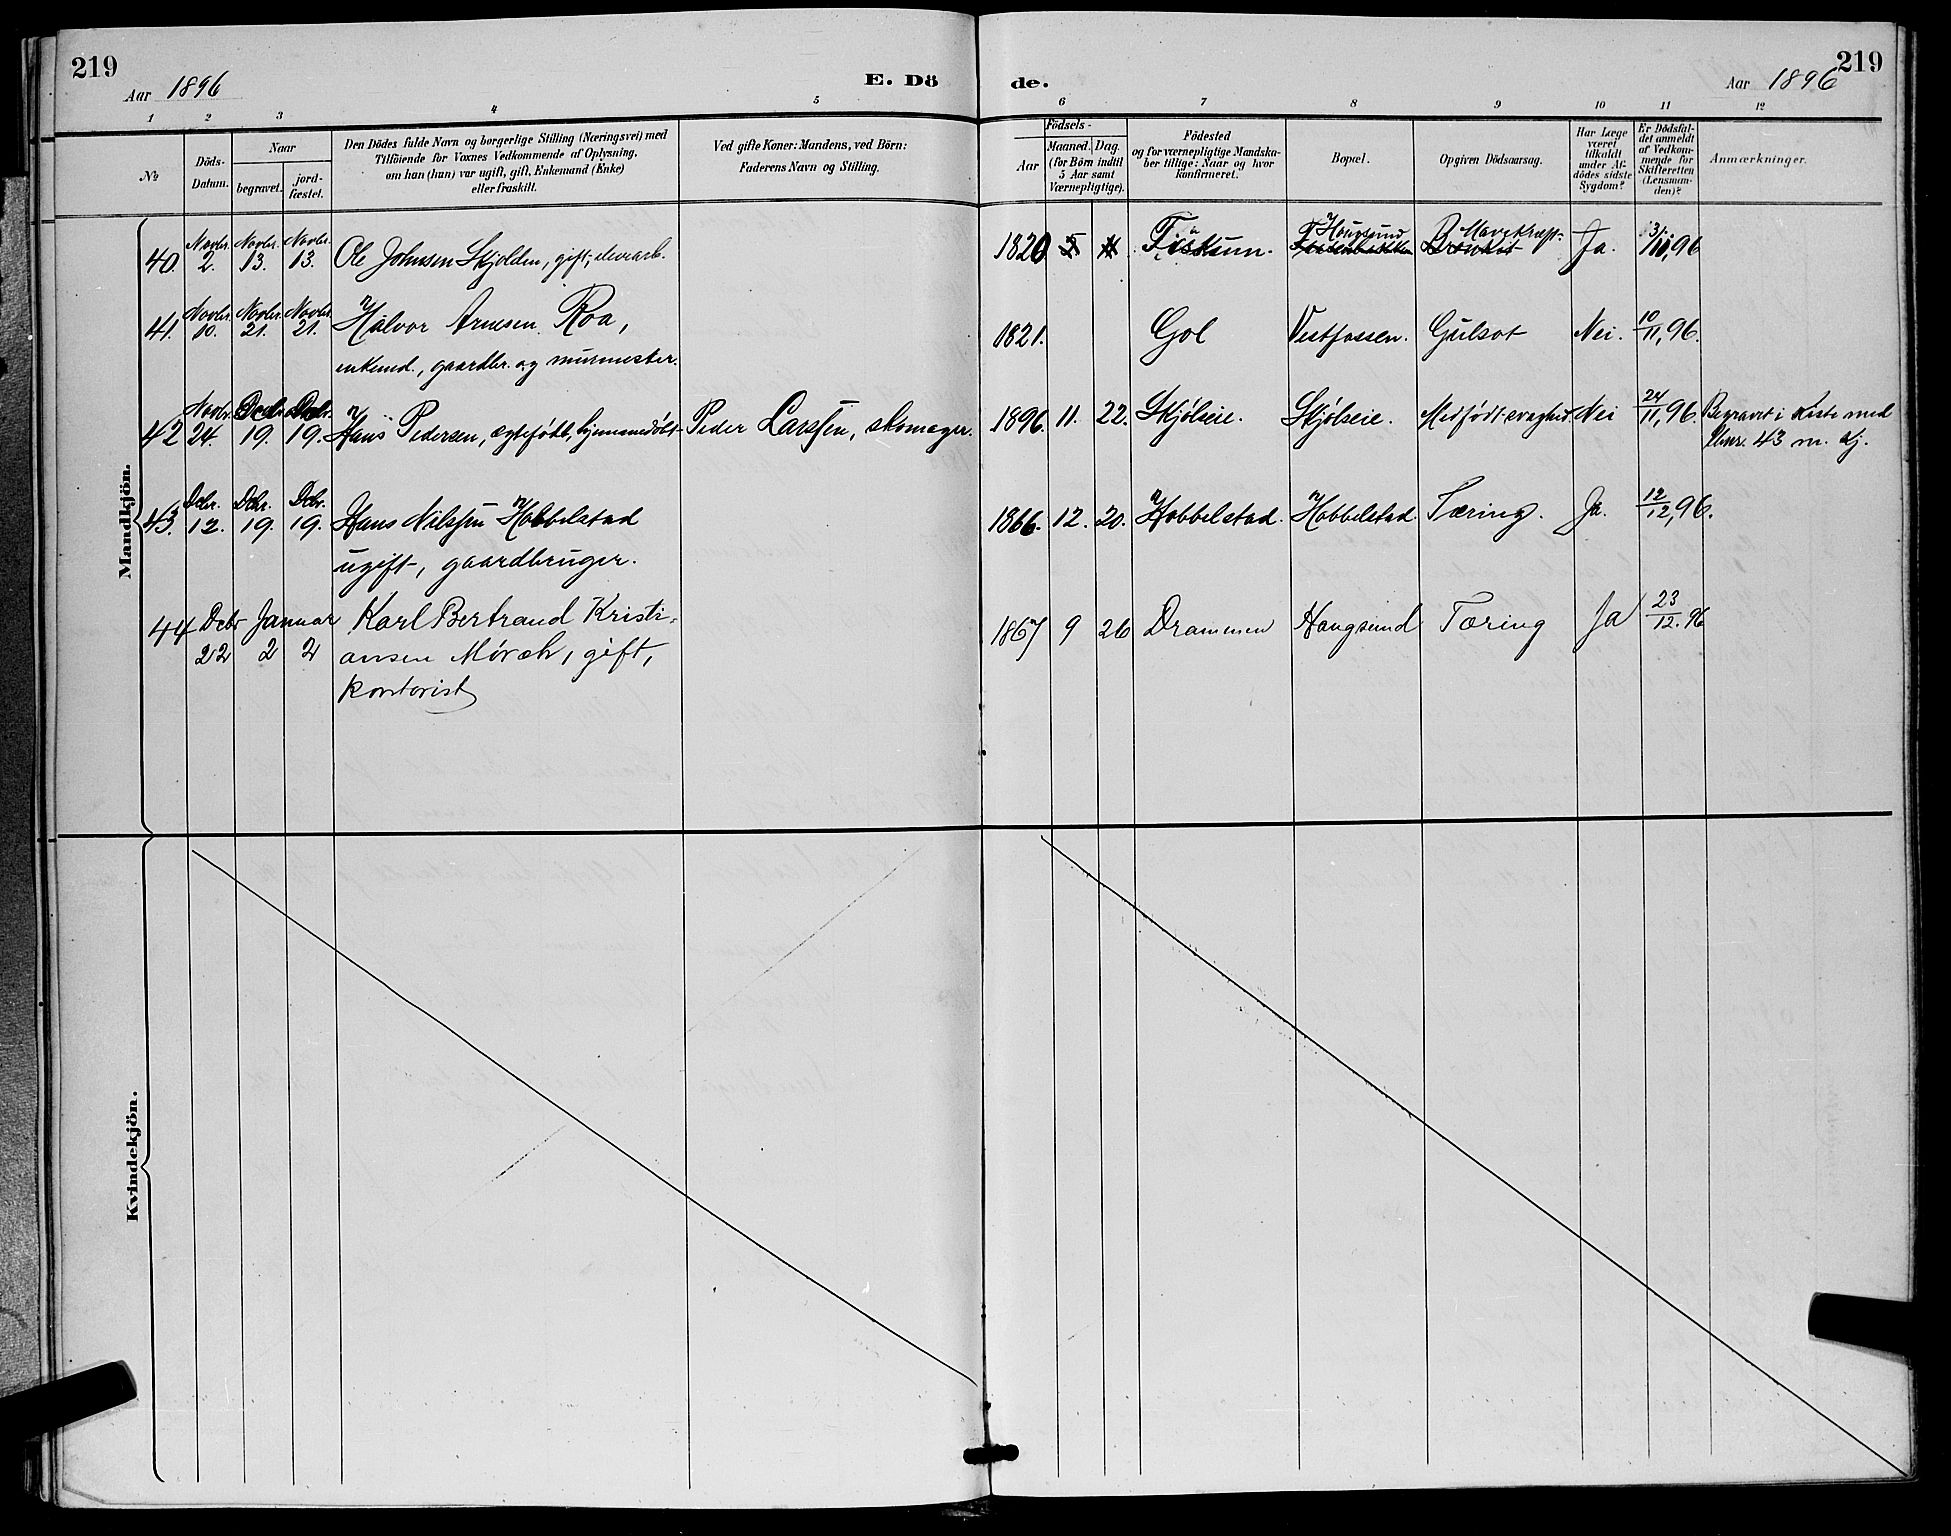 219
Aar 1896
E. Dö
de.
Aar 1896
219
1 2 3 4 5 6 7 8 9 10 11 12
№
Döds-
Datum.
Naar
begravet.
jord-
fæstet.
Den Dödes fulde Navn og borgerlige Stilling (Næringsvei) med
Tilföiende for Voxnes Vedkommende af Oplysning,
om han (hun) var ugift, gift, Enkemand (Enke)
eller fraskilt.
Ved gifte Koner: Mandens, ved Börn:
Faderens Navn og Stilling.
Födsels-
Aar
Maaned. Dag.
(for Börn indtil
5 Aar samt
Værnepligtige).
Födested
og for værnepligtige Mandska-
ber tillige: Naar og hvor
konfirmeret.
Bopæl.
Opgiven Dödsaarsag.
Har Læge
været
tilkaldt
under Af-
dödes sidste
Sygdom?
Er Dödsfal-
det anmeldt
af Vedkom-
mende for
Skifteretten
(Lensman-
den)?
Anmærkninger.
Mandkjön.
40. Novbr. 2. Novbr. 13. Novbr. 13. Ole Johnsen Skjolden, gift, elvearb. 1820 Fiskum. Hougsund Mavekræft. Ja. 3/11, 96
41. Novbr. 10. Novbr. 21. Novbr. 21. Halvor Arnesen Roa, 1821. Gol Vestfossen. Gulsot Nei. 10/11, 96.
enkemd., gaardbr. og murmester.
42 Novbr. 24. Decbr. 19. Decbr. 19. Hans Pedersen, ægtefødt, hjemmedøbt Peder Larssen, skomager. 1896. 11. 22. Skjølseie. Skjølseie. Medfødt svaghed Nei 24/11, 96. Begravet i kiste med
lbnr. 43 m. kj.
43. Decbr. 12. Decbr. 19. Decbr. 19. Hans Nilssen Hobbelstad 1866. 12. 20. Hobbelstad. Hobbelstad. Tæring. Ja. 12/12, 96.
ugift, gaardbruger.
44 Decbr 22 Januar 2 2 Karl Bertrand Kristi-
ansen Mörch, gift,
kontorist 1867 9 26 Drammen Haugsund Tæring Ja 23/12. 96
Kvindekjön.